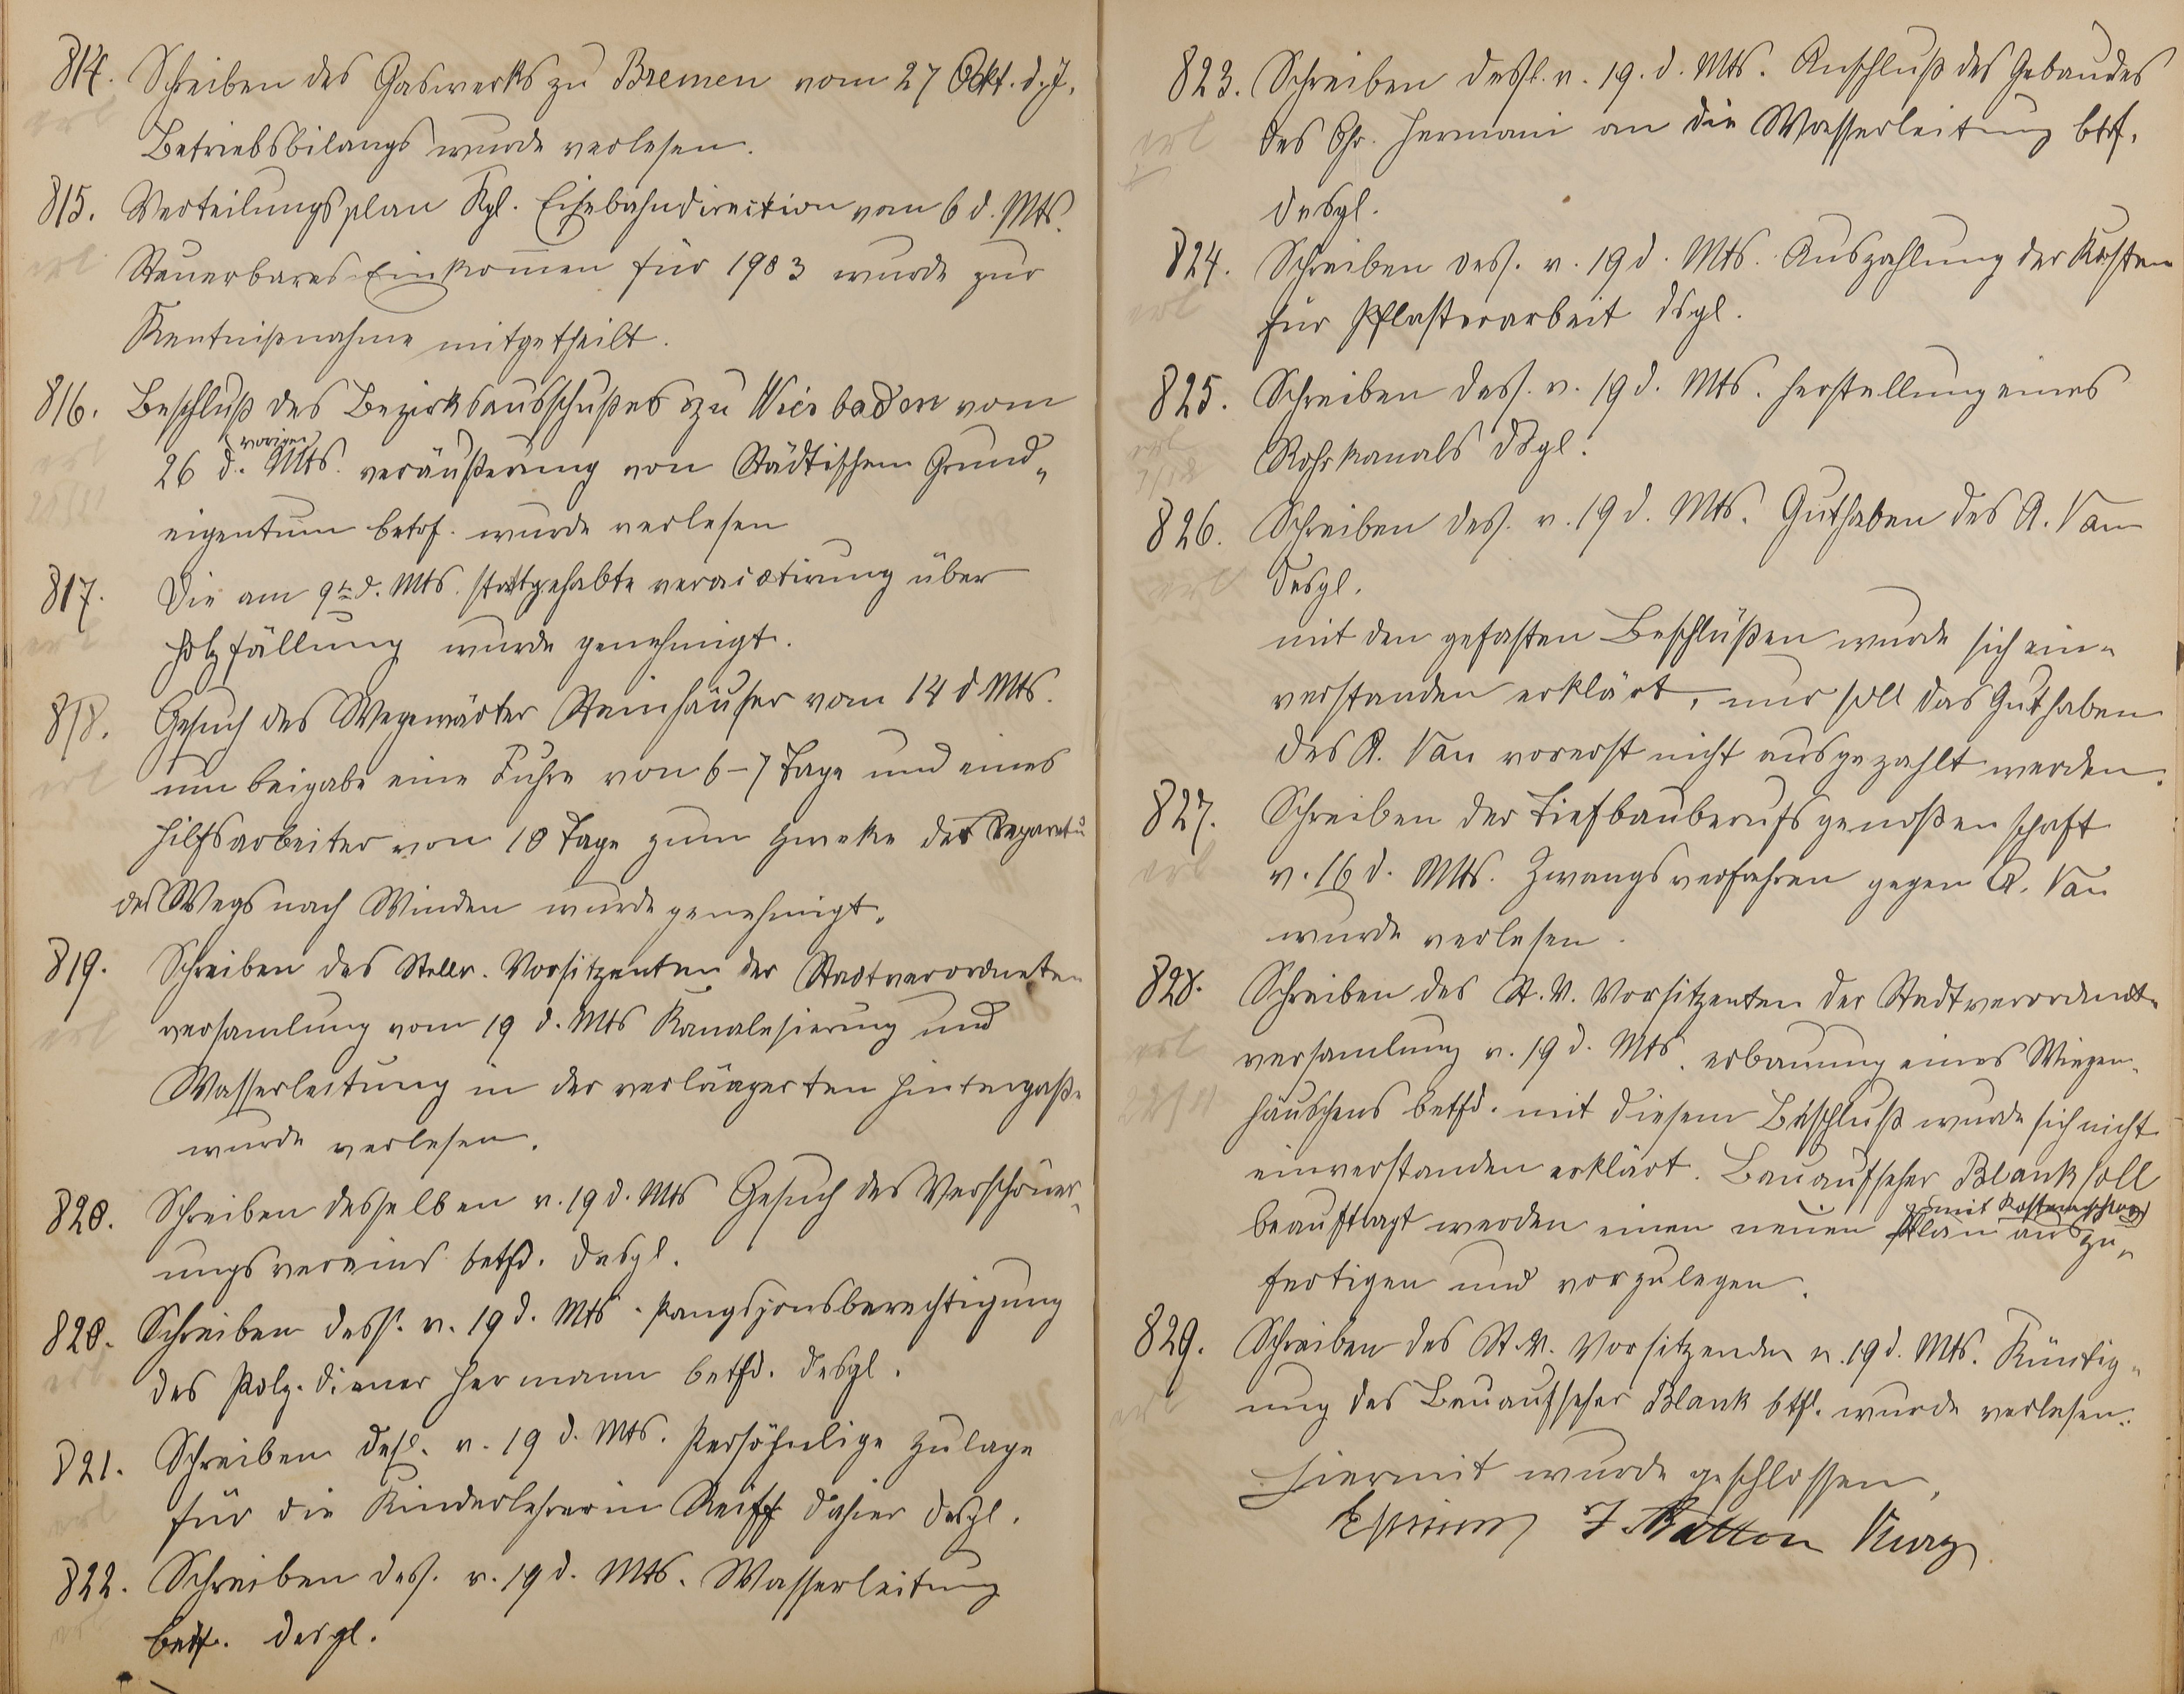 814. Schreiben des Gaswerks zu Bremen vom 27 Okt. d. J.
erl
Betriebsbilangs wurde verlesen.
815. Verteilungsplan Kgl. Eisebahndirecktion vom 6 d. Mts.
erl
Steuerbares Einkomen für 1903 wurde zur
Kentnißnahme mitgetheilt.
816. Beschluß des Bezirksausschußes zu Wiesbaden vom
vorigen
erl
26 d. Mts. veräußerung von Städtischem Grund-
eigentum betrf. wurde verlesen
817. Die am 9ten d. Mts. stattgehabte veracktirung über
erl
Holzfällung wurde genehmigt.
818. Gesuch des Wegewärter Steinhäuser vom 14 d Mts.
erl
um beigabe eine Fuhre von 6-7 Tage und eines
Hilfsarbeiter von 10 Tage zum Zweke der Reparatu
des Wegs nach Winden wurde genehmigt.
819. Schreiben des Stellv. Vorsitzenten der Stadtverordneten
erl
versamlung vom 19 d. Mts Kanalesierung und
Wasserleitung in der verlängerten Hintergaße
wurde verlesen.
820. Schreiben desselben v. 19 d. Mts Gesuch des Verschöner-
ungsvereins betfd. desgl.
820. Schreiben dess. v. 19 d. Mts. Pangsjonsberechtigung
erl
des Polz. diener Hermann betfd. desgl.
821. Schreiben desl. v. 19 d. Mts. Persöhnlige Zulage
erl
für die Kinderlehrerin Reiff dahier desgl.
822. Schreiben dess. v. 19 d. Mts. Wasserleitung
betf. desgl.
823. Schreiben dessl. v. 19. d. Mts. Anschluß des Gebaudes
erl
des Chr. Hermani an die Wasserleitung btrf.
desgl.
824. Schreiben dess. v. 19 d. Mts. Auszahlung der Kosten
erl
für Pflasterarbeit dsgl.
825. Schreiben dess. v. 19 d. Mts. Herstellung eines
erl
Rohrkanals dsgl.
826. Schreiben des. v. 19 d. Mts. Guthaben des A. Vau
erl
desgl.
mit den gefasten Beschlüßen wurde sich ein-
verstanden erklärt, nur soll das Guthaben
des A. Vau vorerst nicht ausgezahlt werden.
827. Schreiben der Tiefbauberufsgenoßenschaft
erl
v. 16 d. Mts. Zwangsverfahren gegen A. Vau
wurde verlesen.
828. Schreiben des St. V. Vorsitzenten der Stadtverordnet-
erl
versamlung v. 19 d. Mts. erbauung eines Wiegen-
22/11
häuschens betfd. mit diesem Beschluß wurde sich nicht
einverstanden erklärt. Bauaufseher Blank soll
mit Kostenanschlag
beauftragt werden einen neuen Plan aus zu-
fertigen und vorzulegen.
829. Schreiben des St. V. Vorsitzenden v. 19 d. Mts. Küntig-
erl
ung des Bauaufseher Blank btfd. wurde verlesen.
Hiermit wurde geschlossen,
Kurz